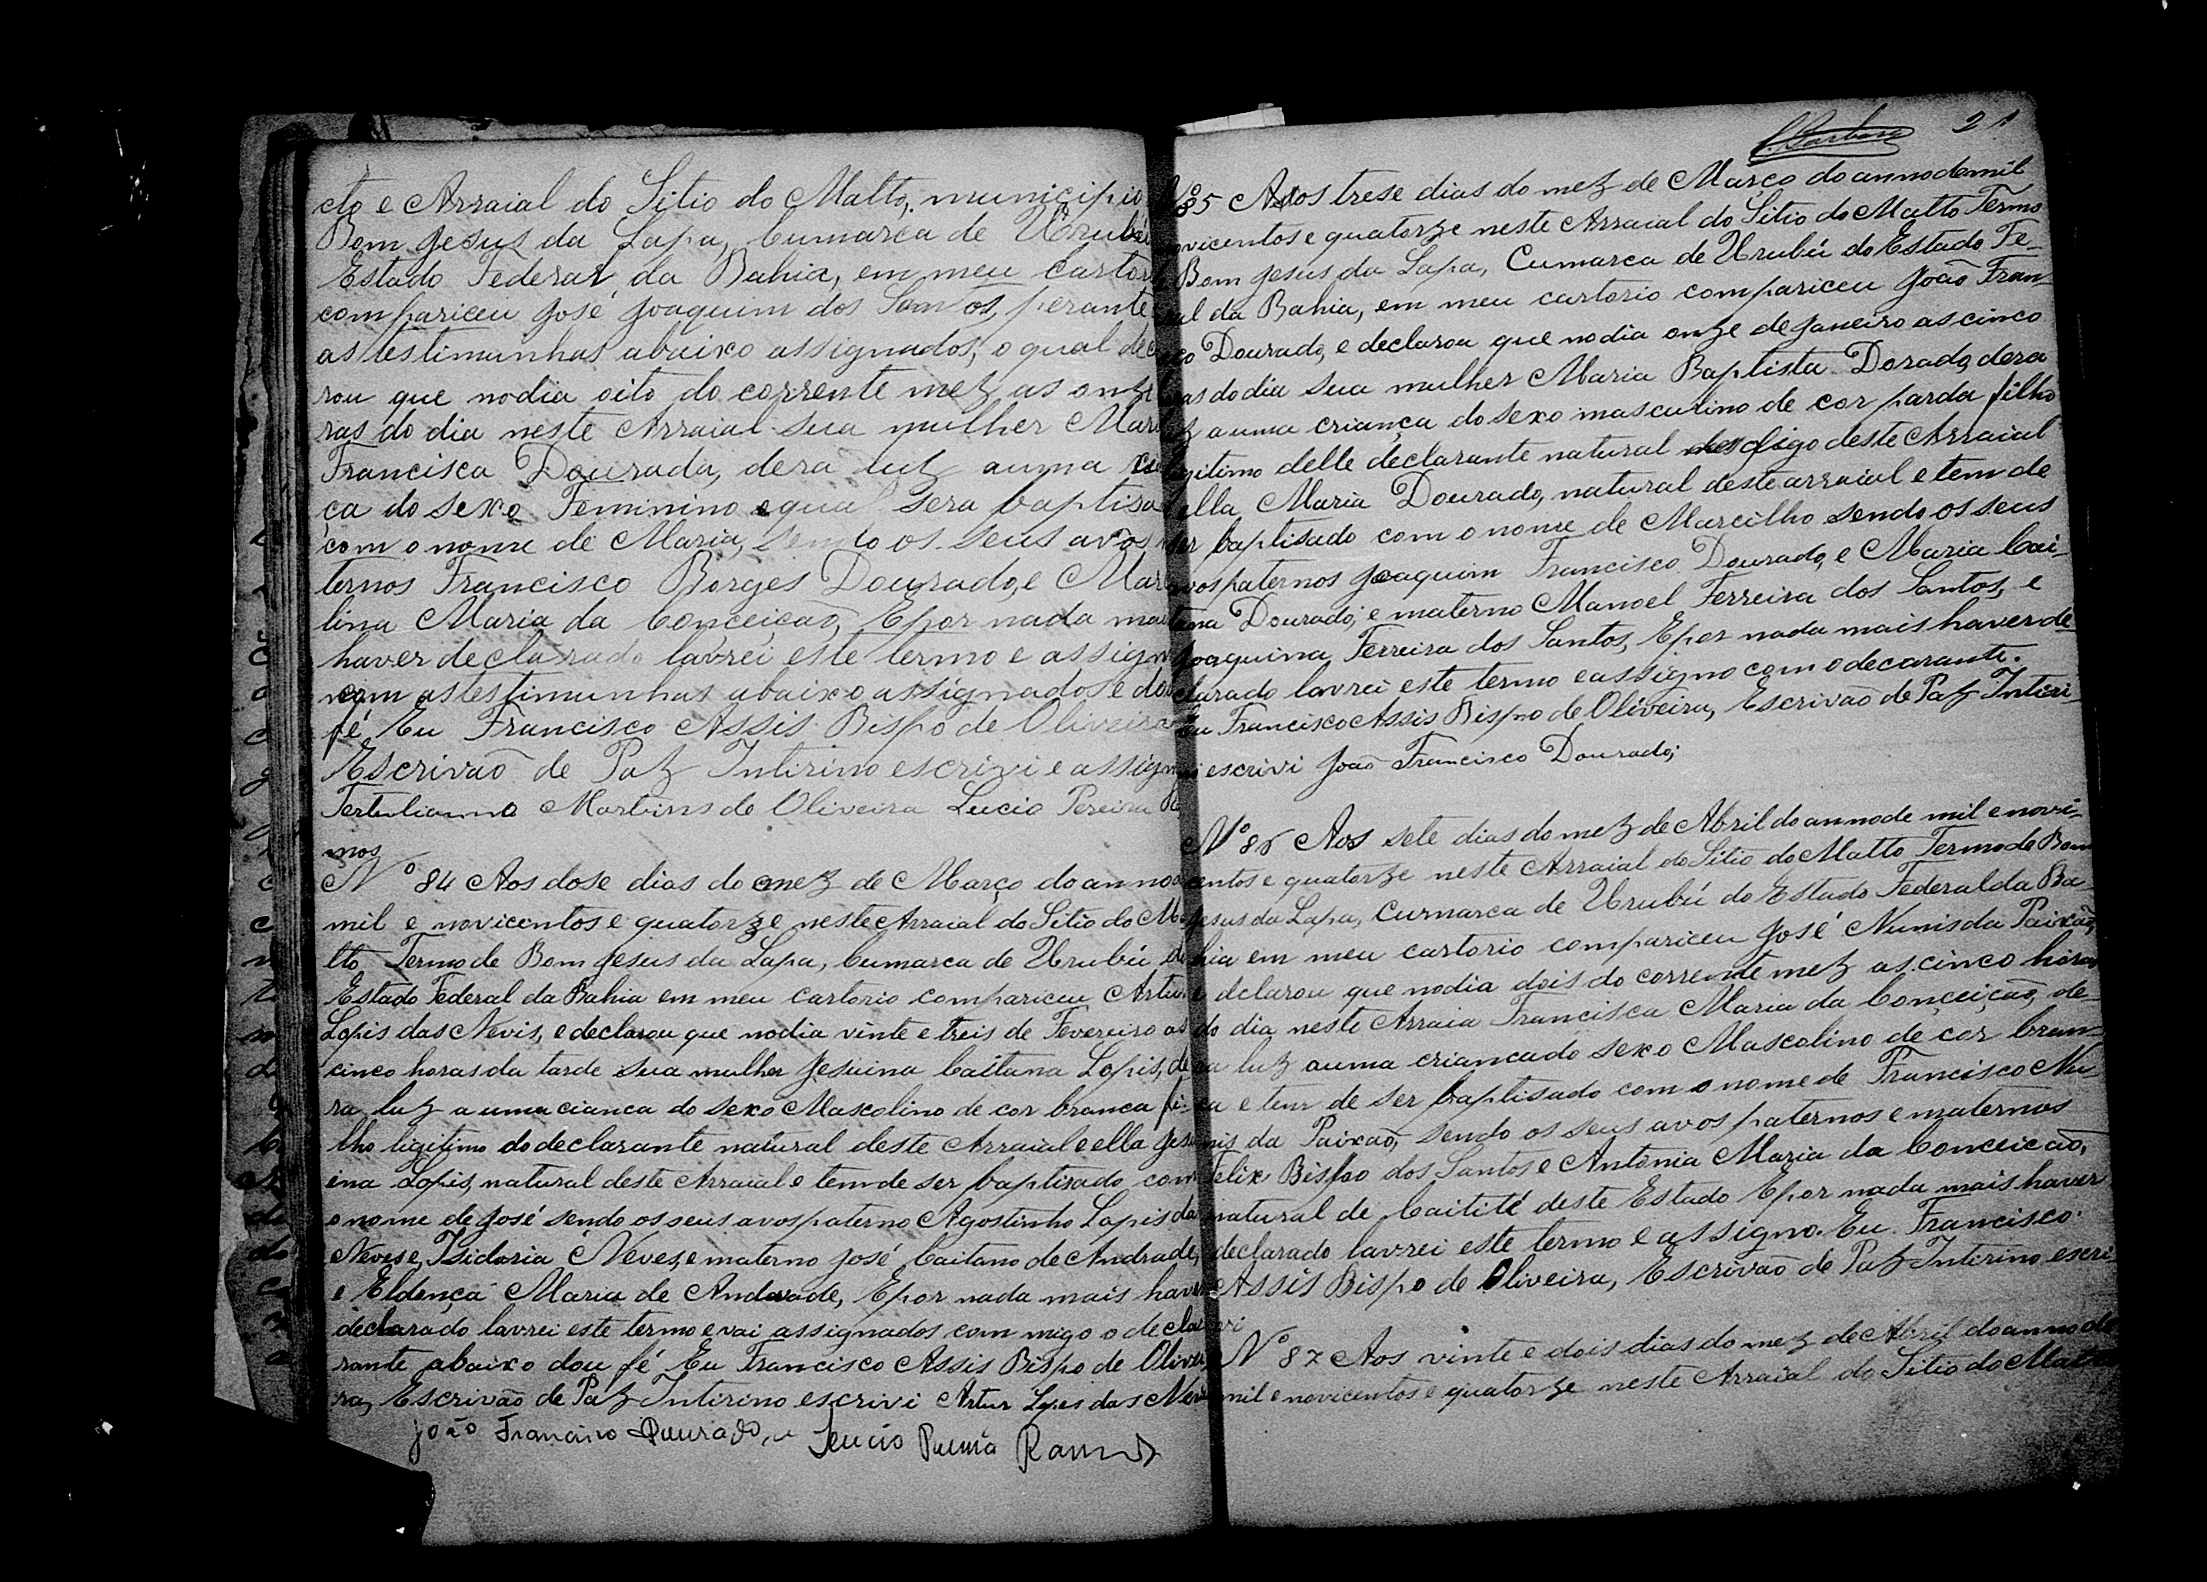 cto e Arraial do Sitio do Matto, municipio
Bom Jesus da Lapa, Cumarca de Urubú
Estado Federal da Bahia, em meu cartor
compariceu José Joaquim dos Santos, perante
as testimunhas abaixo assignados, o qual dec
rou que no dia oito do corrente mez as onze
ras do dia neste Arraial sua mulher Mari
Francisca Dourada, dera luz auma
ça do sexo Feminino equal sera baptisa
com o nome de Maria, sendo os seus avós
ternos Francisco Borges Dourado, e Mar
lina Maria da Conceição, Epor nada ma
haver declarado lavrei este termo e assign
com as testimunhas abaixo assignados e dou
fé Eu Francisco Assis Bispo de Oliveira
Escrivão de Paz Intirino escrivi e assign
Tertulianno Martins de Oliveira Lucio Pereira Ra
mos
Nº 84 Aos dose dias do mez de Março do anno
mil e novicentos e quatorze neste Arraial do Sitio do Ma
tto Termo de Bom Jesus da Lapa, Cumarca de Urubú do
Estado Federal da Bahia em meu cartorio compariceu Artur
Lopis das Nevis, e declarou que no dia vinte e treis de Fevereiro as
cinco horas da tarde sua mulher Jesuina Caitana Lopis, de
ra luz a uma cianca do sexo Mascolino de cor branca fi-
lho ligitimo do declarante natural deste Arraial e ella Jesu
ina Lopis, natural deste Arraial e tem de ser baptisado com
o nome de José sendo os seus avos paterno Agostinho Lopis da
Neves e, Isidoria Neves, e materno José Caitano de Andrade,
e Eldença Maria de Andrade, Epor nada mais haver
declarado lavrei este termo e vai assignados com migo o decla
rante abaixo dou fé Eu Francisco Assis Bispo de Olivei
ra, Escrivão de Paz Intirino escrivi Artur Lopes das Neves
João Francisco Dourado, Lucio Pereira Ramos
21
Nº 85 Aos trese dias do mez de Março do anno de mil
novicentos e quatorze neste Arraial do Sitio do Matto Termo
Bom Jesus da Lapa, Cumarca de Urubú do Estado Fe-
al da Bahia, em meu cartorio compariceu João Fran-
co Dourado, e declarou que no dia onze de Janeiro as cinco
as do dia sua mulher Maria Baptista Dorado, dera
z auma criança do sexo masculino de cor parda filho
gitimo delle declarante natural digo deste Arraial
ella Maria Dourado, natural deste arraial e tem de
er baptisado com o nome de Marcilho sendo os seus
vos paternos Joaquim Francisco Dourado, e Maria Cai-
tana Dourado, e materno Manoel Ferreira dos Santos, e
Joaquina Ferreira dos Santos, Epor nada mais haver de-
clarado lavrei este termo e assigno com o decarante.
Eu Francisco Assis Bispo de Oliveira, Escrivão de Paz Intiri-
no escrivi João Francisco Dourado,
Nº 86 Aos sete dias do mez de Abril do anno de mil e novi-
centos e quatorze neste Arraial do Sitio do Matto Termo do Bom
Jesus da Lapa, Cumarca de Urubú do Estado Federal da Ba-
hia em meu cartorio compariceu José Nunis da Paixão,
e delarou que no dia dois do corrente mez as cinco horas
do dia neste Arraia Francisca Maria da Conceição, de-
ra luz auma criancado sexo Mascolino de cor bran-
ca e tem de ser baptisado com o nome de Francisco Nu
nis da Paixão, sendo os seus avos paternos e maternos
Felix Bispo dos Santos e Antônia Maria da Conceicão,
natural de Caitité deste Estado Epor nada mais haver
declarado lavrei este termo e assigno. Eu Francisco
Assis Bispo de Oliveira, Escrivão de Paz Intirino escri
vi
Nº 87 Aos vinte e dois dias do mez de Abril do anno de
mil e novicentos e quatorze neste Arraial do Sitio do Matto